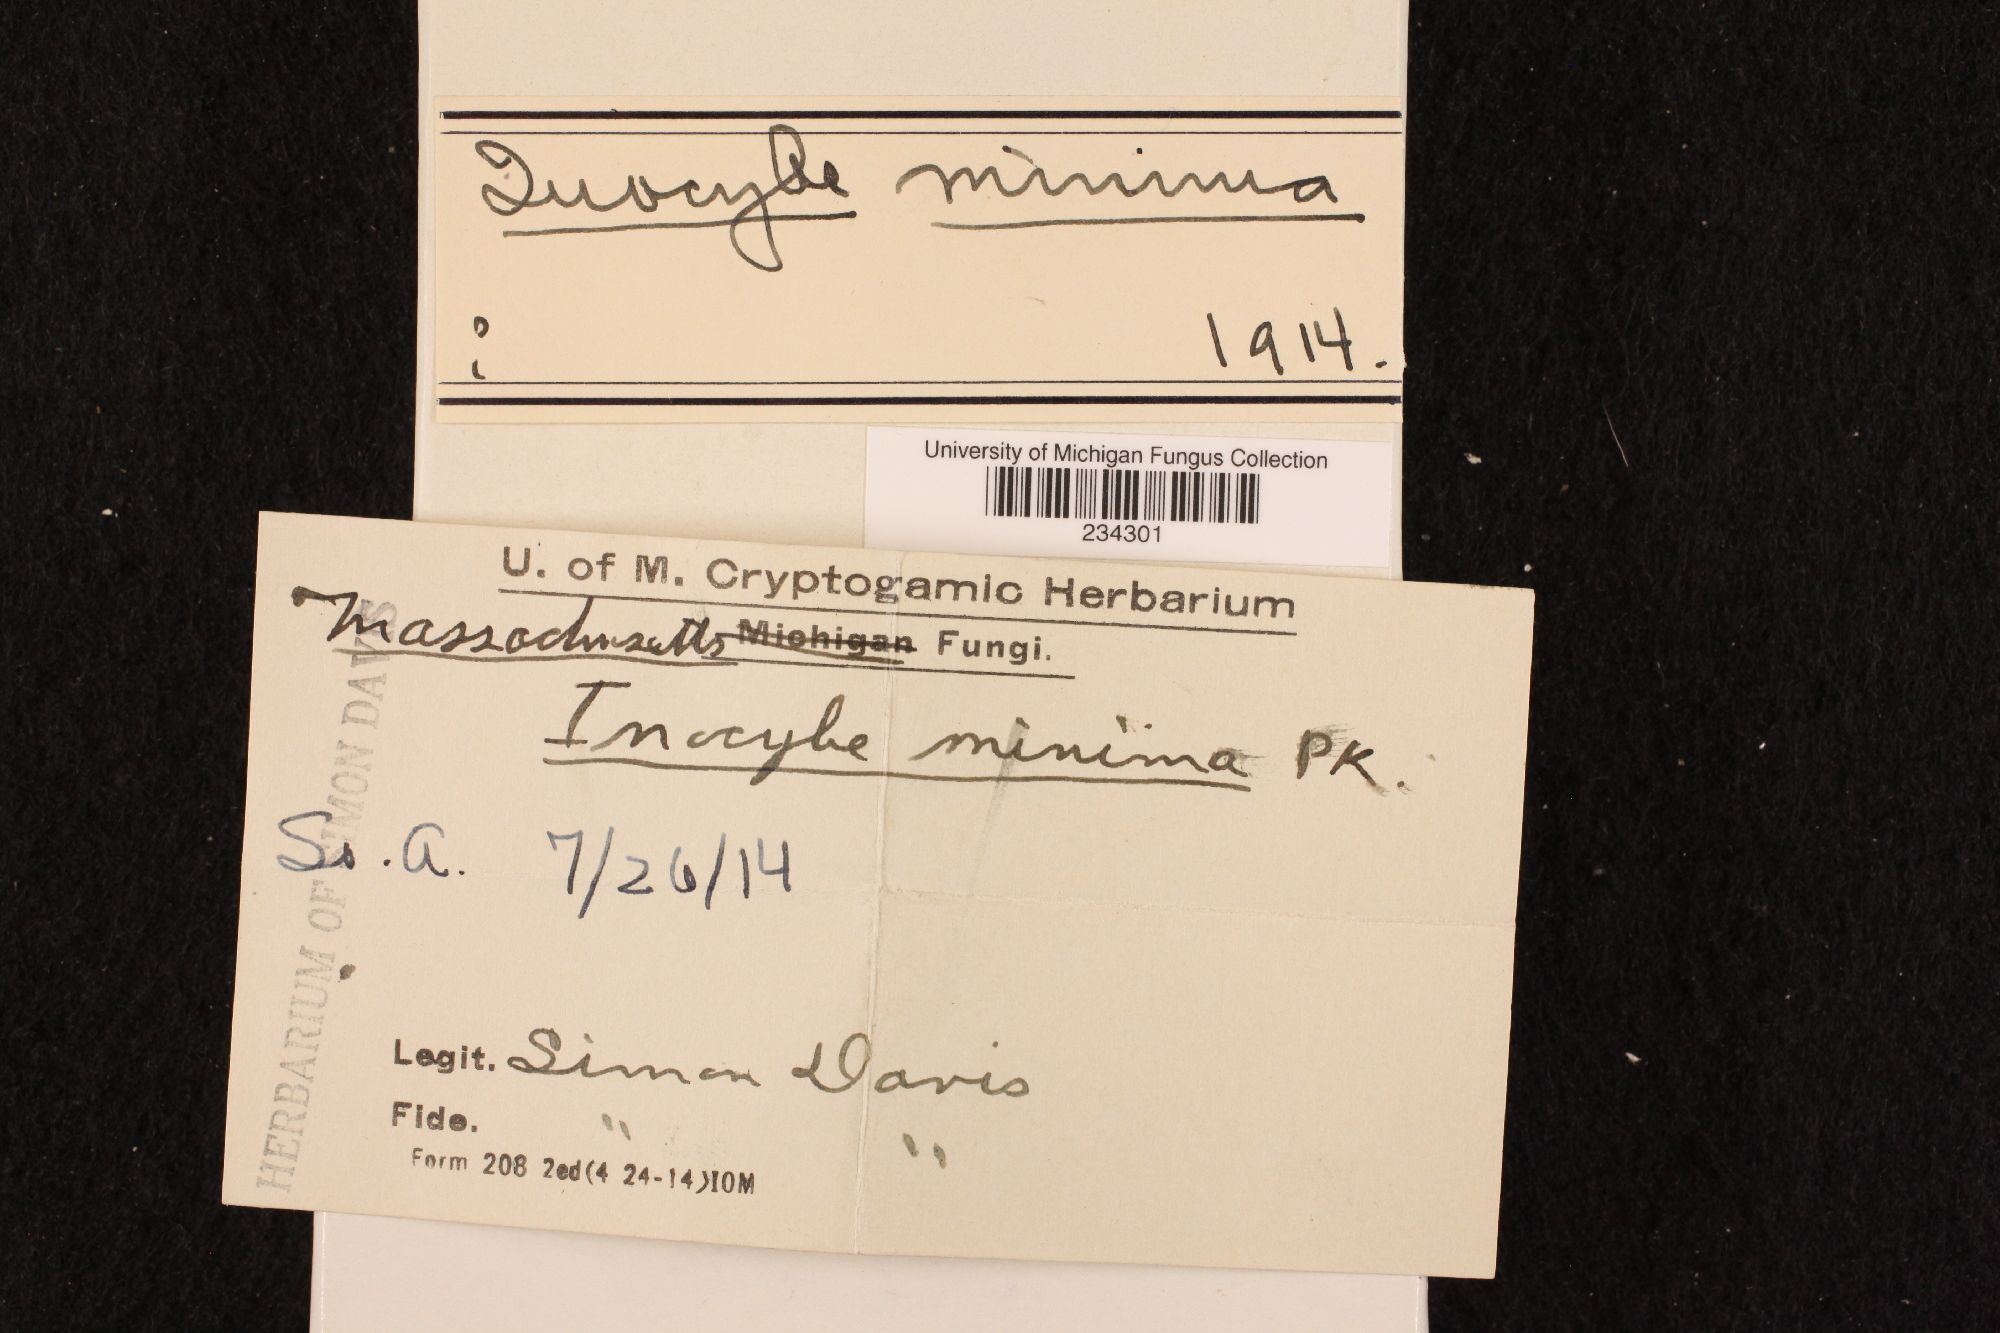 Inocybe minima
? 1914.
University of Michigan Fungus Collection
234301
U. of M. Cryptogamic Herbarium
Massachusetts Michigan Fungi.
Inocybe minima PK.
So. A. 7/26/14
Legit. Simon Davis
Fide. " "
Form 208 2ed(4 24-14)10M
HERBARIUM OF SIMON DAVIS